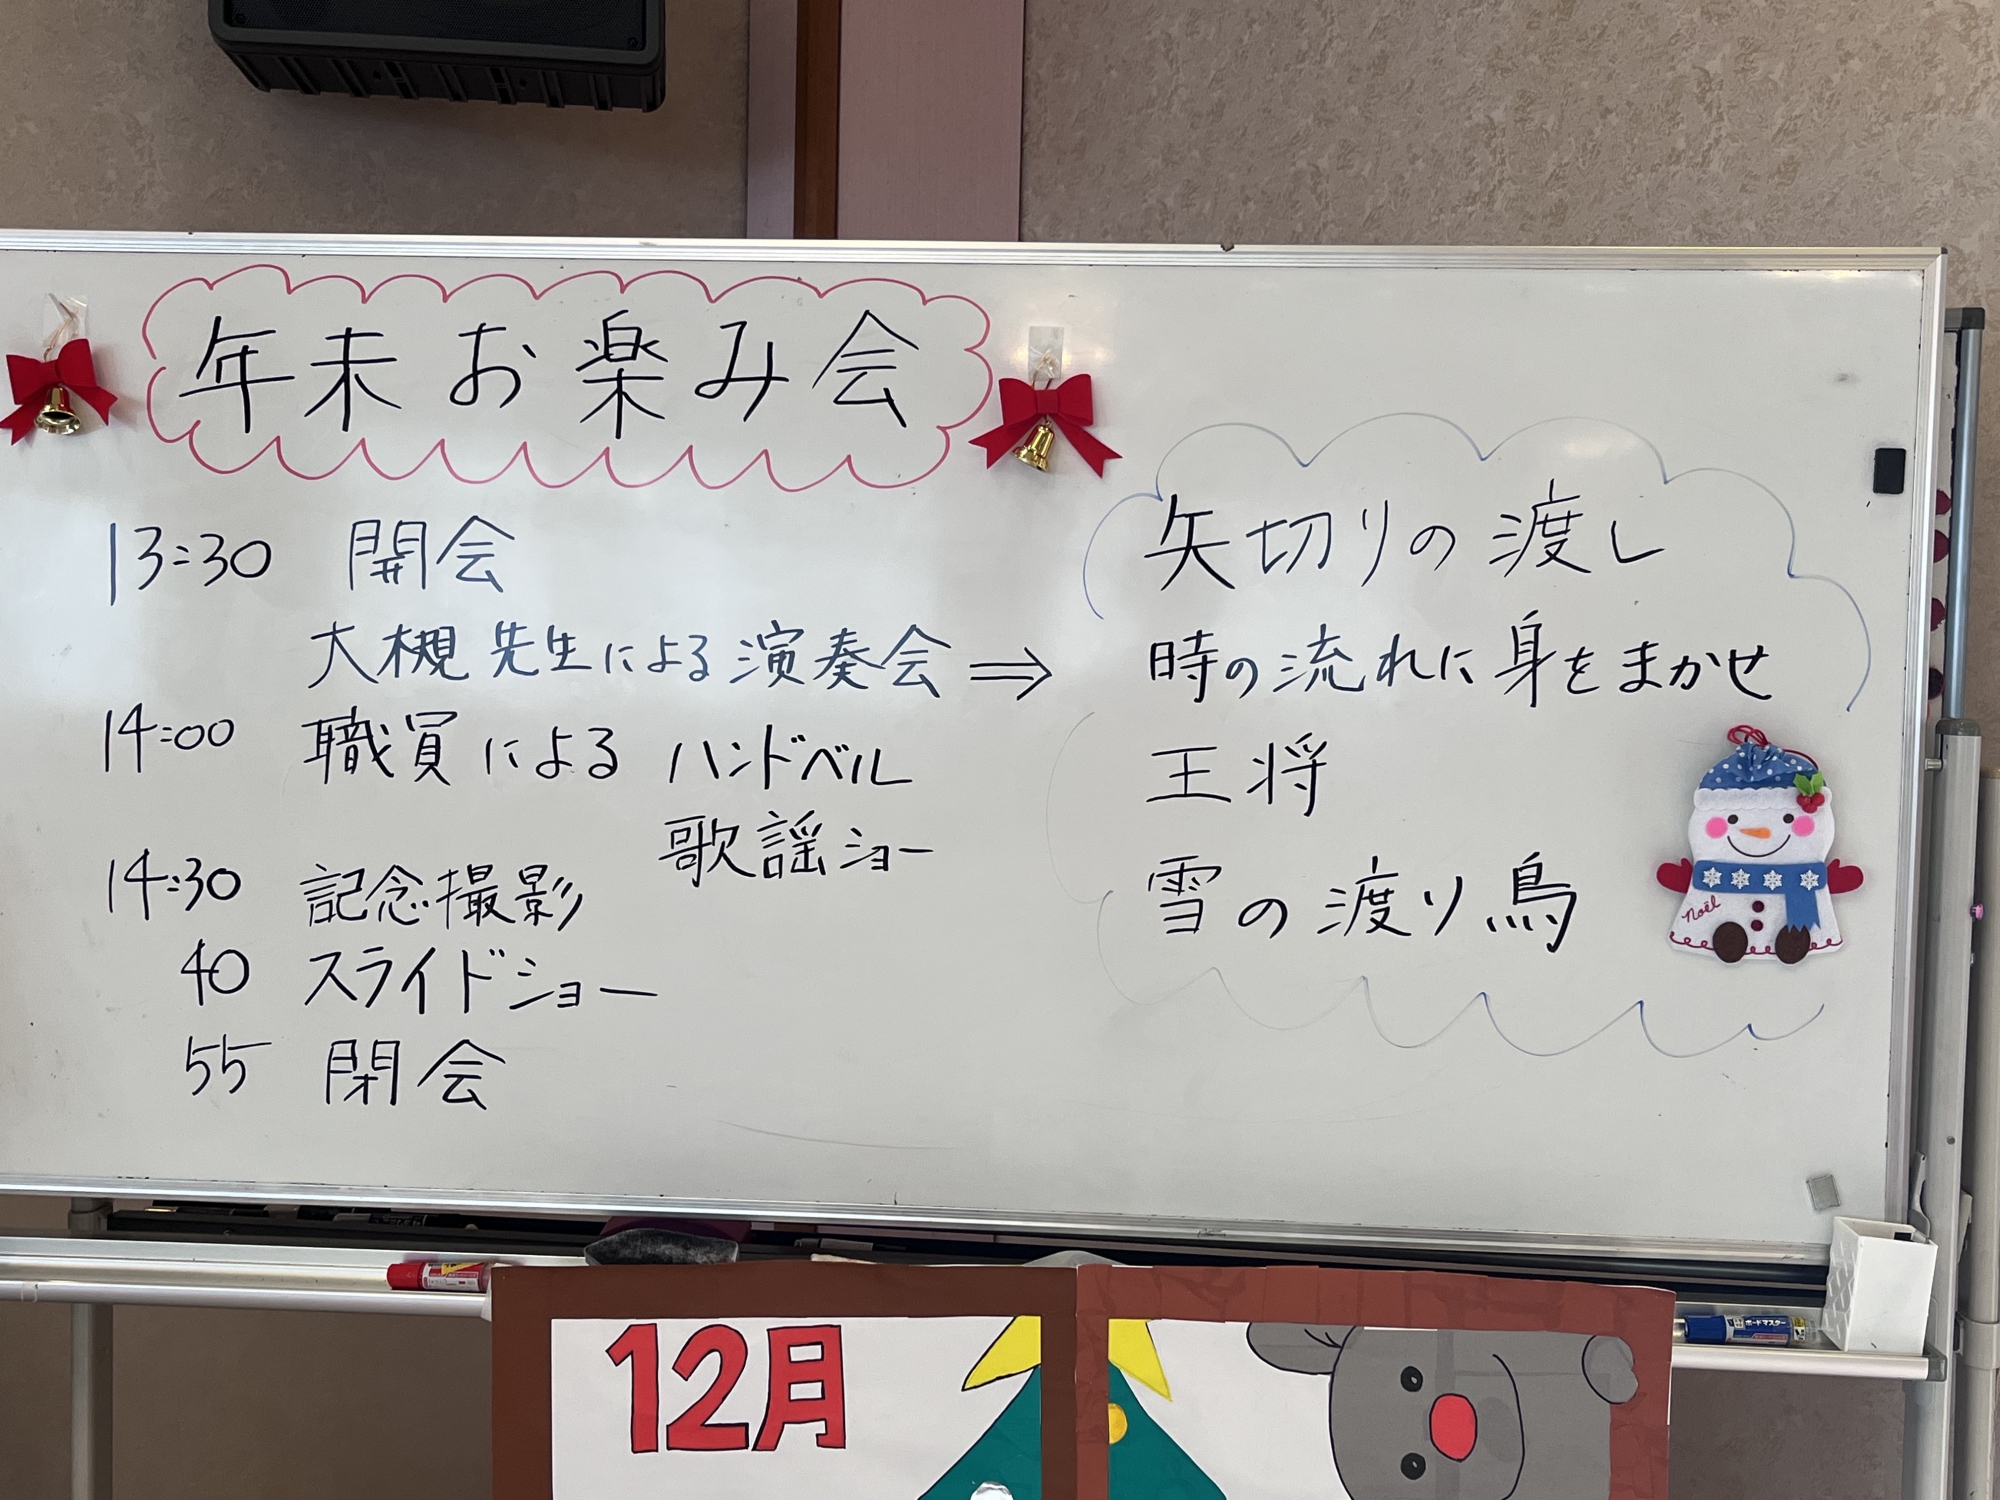 年末お楽み会
13:30 開会
大槻先生による演奏会 ⇒
14:00 職員による ハンドベル
歌謡ショー
14:30 記念撮影
40 スライドショー
55 閉会
矢切りの渡し
時の流れに身をまかせ
王将
雪の渡り鳥
Noël
12月
ボードマスター